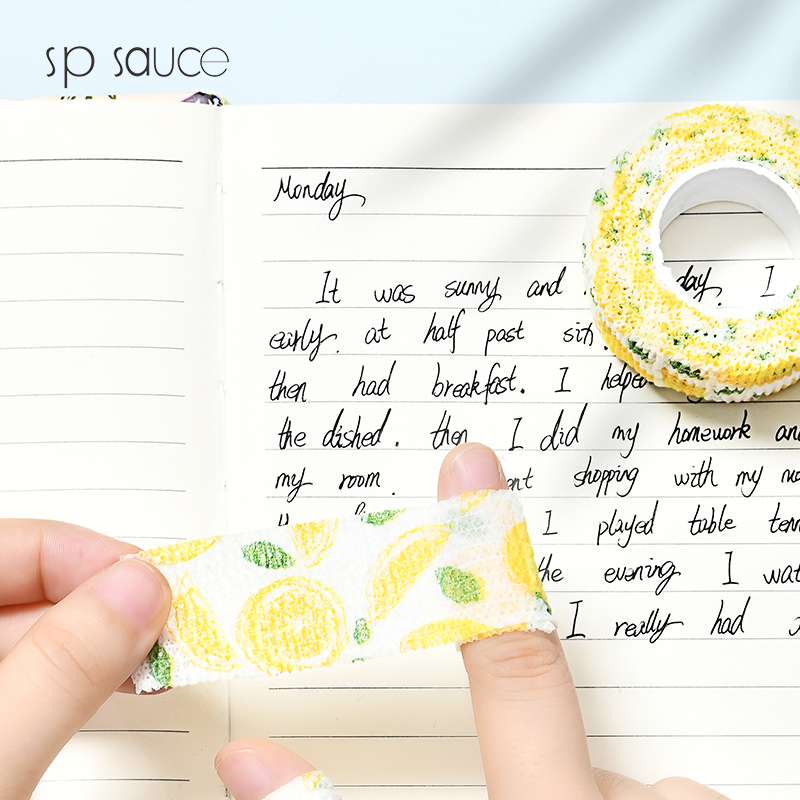 sp sauce
Monday
It was sunny and day. I
early. at half past six.
then had breakfast. I helped
the dished. then I did my homework and
my room. shopping with my
I played table
the evening I
I really had